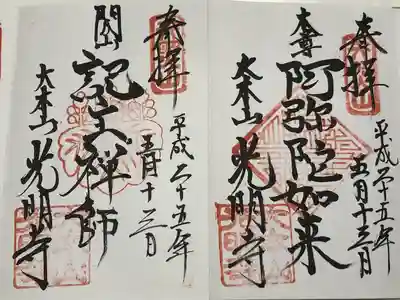 奉拝
平成二十五年
五月十三日
本尊
阿弥陀如来
大本山
光明寺
奉拝
平成二十五年
五月十三日
開山
記主禅師
大本山
光明寺